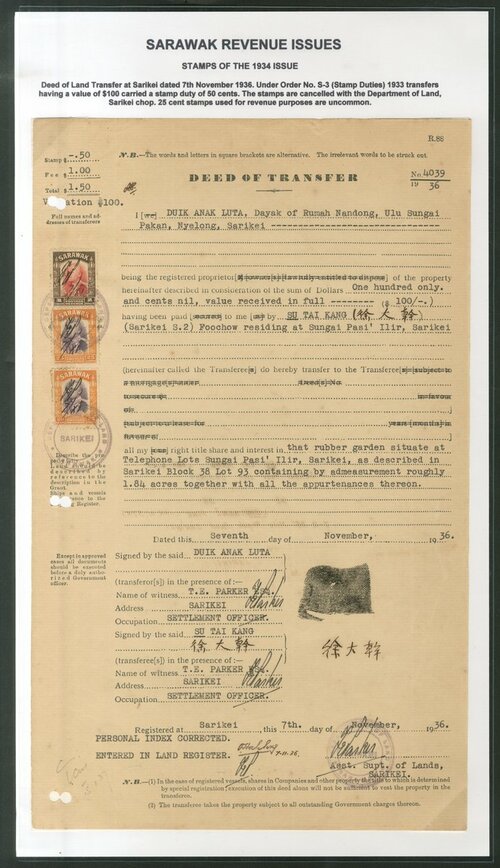 SARAWAK REVENUE ISSUES
STAMPS OF THE 1934 ISSUE
Deed of Land Transfer at Sarikei dated 7th November 1936. Under Order No. S-3 (Stamp Duties) 1933 transfers
having a value of $100 carried a stamp duty of 50 cents. The stamps are cancelled with the Department of Land,
Sarikei chop. 25 cent stamps used for revenue purposes are uncommon.
R.88
Stamp $ -.50
Fee $ 1.00
Total $ 1.50
N.B.—The words and letters in square brackets are alternative. The irrelevant words to be struck out.
DEED OF TRANSFER
No. 4039
19 36
Valuation $100.
Full names and addresses of transferors
I [we] DUIK ANAK LUTA, Dayak of Rumah Nandong, Ulu Sungai
Pakan, Nyelong, Sarikei
being the registered proprietor[s] of the property
hereinafter described in consideration of the sum of Dollars One hundred only.
and cents nil, value received in full -------- ($ 100/-.)
having been paid to me [us] by SU TAI KANG (徐大幹)
(Sarikei S.2) Foochow residing at Sungai Pasi' Ilir, Sarikei
SARAWAK
SARAWAK
SARAWAK
SARIKEI
(hereinafter called the Transferee[s]) do hereby transfer to the Transferee[s]
all my [our] right title share and interest in that rubber garden situate at
Telephone Lots Sungai Pasi' Ilir, Sarikei, as described in
Sarikei Block 38 Lot 93 containing by admeasurement roughly
1.84 acres together with all the appurtenances thereon.
Dated this Seventh day of November, 1936.
Except in approved cases all documents should be executed before a duly authorized Government officer.
Signed by the said DUIK ANAK LUTA
(transferor[s]) in the presence of :—
Name of witness T.E. PARKER ESQ.
Address SARIKEI
Occupation SETTLEMENT OFFICER.
Signed by the said SU TAI KANG
徐大幹
徐大幹
(transferee[s]) in the presence of :—
Name of witness T.E. PARKER ESQ.
Address SARIKEI
Occupation SETTLEMENT OFFICER.
Registered at Sarikei this 7th. day of November, 1936.
PERSONAL INDEX CORRECTED.
ENTERED IN LAND REGISTER.
7-11-36.
Asst. Supt. of Lands,
SARIKEI.
N.B.—(1) In the case of registered vessels, shares in Companies and other property the title to which is determined
by special registration, execution of this deed alone will not be sufficient to vest the property in the
transferee.
(2) The transferee takes the property subject to all outstanding Government charges thereon.